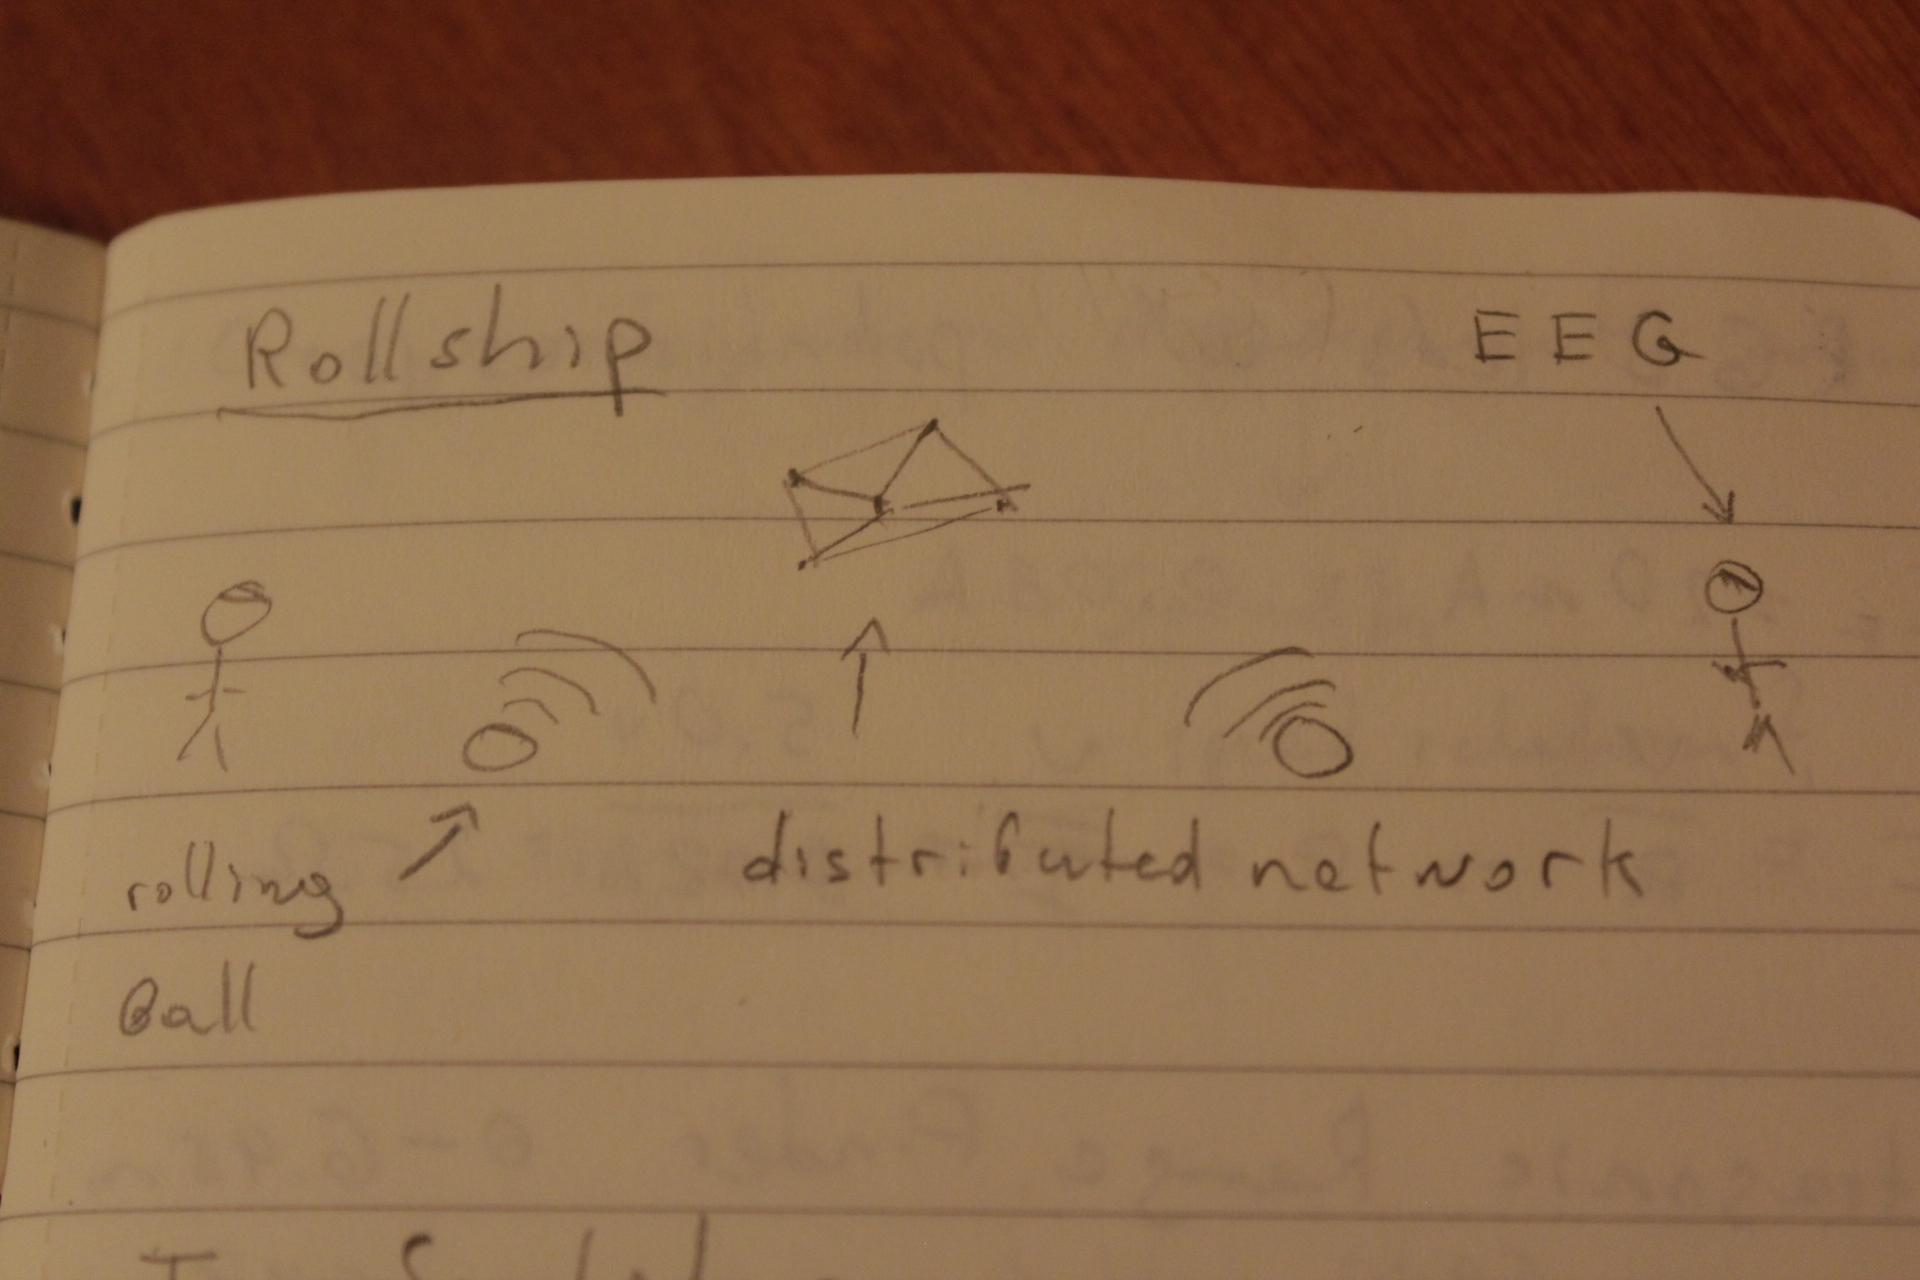 Rollship
EEG
rolling
distributed network
Ball